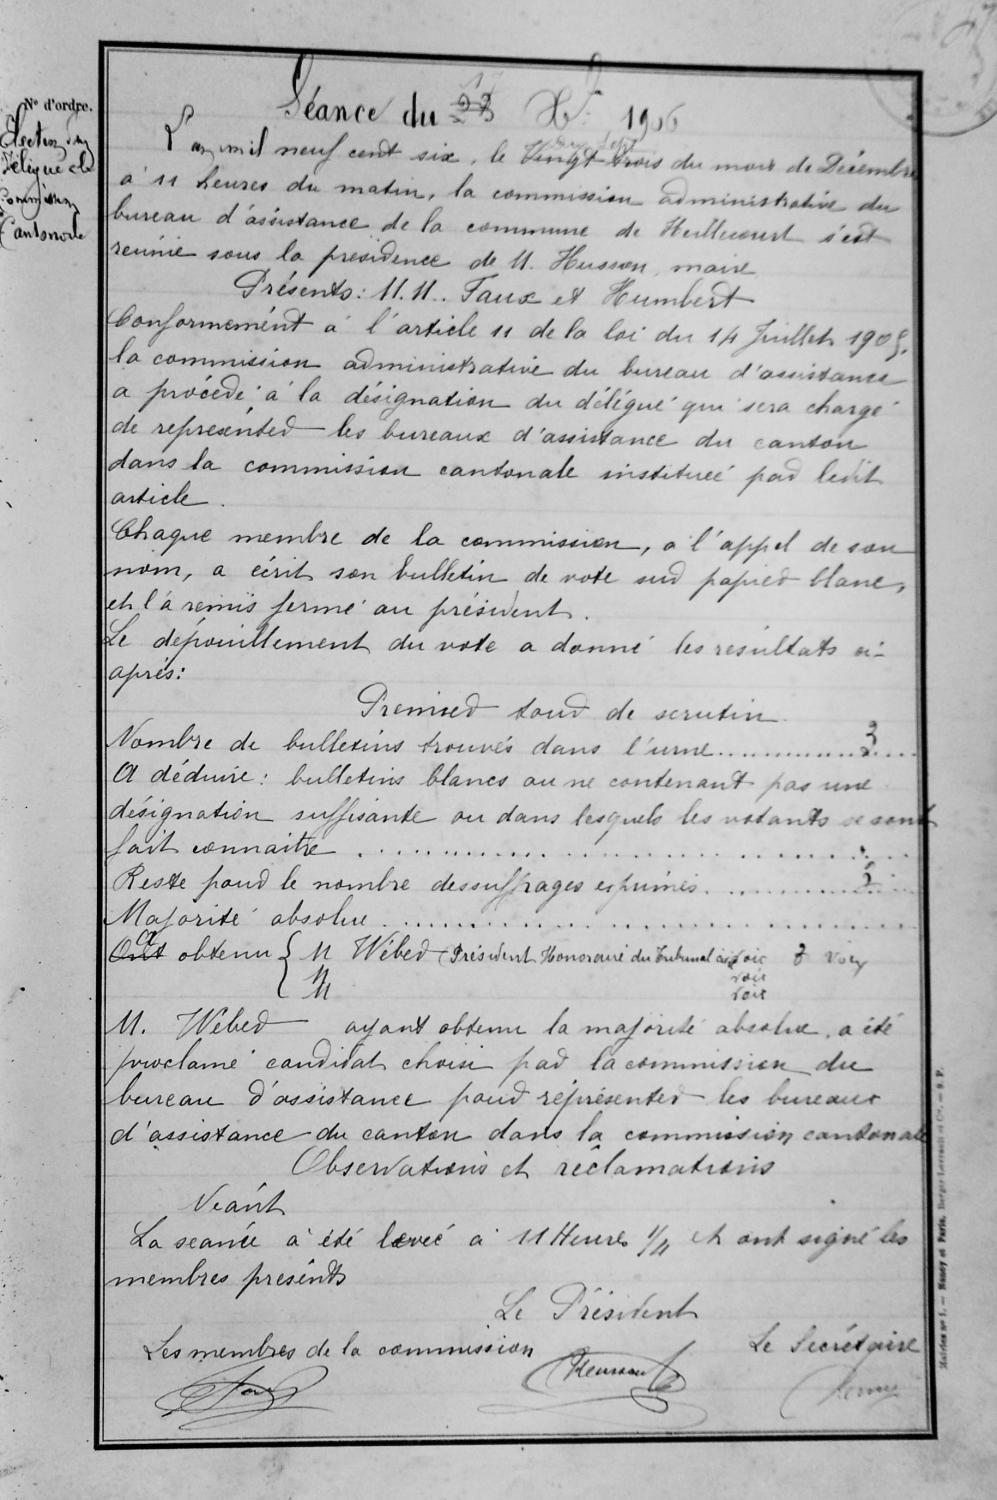 N° d'ordre.
Election d'un
Délégué à la
Commission
Cantonale
Séance du 17 23 Xbre 1906
L'an mil neuf cent six, le Vingt trois dix sept du mois de Décembre
à 11 heures du matin, la commission administrative du
bureau d'assistance de la commune de Heillecourt s'est
réunie sous la présidence de M. Husson, maire
Présents: M.M. Faux et Humbert
Conformément à l'article 11 de la loi du 14 Juillet 1905,
la commission administrative du bureau d'assistance
a procédé à la désignation du délégué qui sera chargé
de représenter les bureaux d'assistance du canton
dans la commission cantonale instituée par ledit
article.
Chaque membre de la commission, à l'appel de son
nom, a écrit son bulletin de vote sur papier blanc,
et l'a remis fermé au président.
Le dépouillement du vote a donné les résultats ci-
après:
Premier tour de scrutin
Nombre de bulletins trouvés dans l'urne.................. 3
A déduire: bulletins blancs ou ne contenant pas une
désignation suffisante ou dans lesquels les votants se sont
fait connaitre ..................
Reste pour le nombre des suffrages exprimés..................
Majorité absolue..................
Ont a obtenu { M Wéber (Président Honoraire du Tribunal civ voix 3 voix
M voix
M voix
M. Wéber ayant obtenu la majorité absolue, a été
proclamé candidat choisi par la commission du
bureau d'assistance pour représenter les bureaux
d'assistance du canton dans la commission cantonale
Observations et réclamations
Néant
La séance a été levée à 11 Heures 1/4 et ont signé les
membres présents
Le Président
Les membres de la commission
Le Secrétaire
Mairies n° 1. — Nancy et Paris, Berger-Levrault et Cie. —